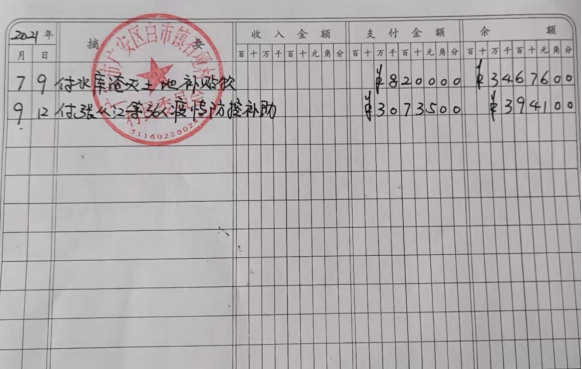 2021年 摘 要 收入金额 支付金额 余 额
月 日 百十万千百十元角分 百十万千百十元角分 百十万千百十元角分
7 9 付水库淹灭土地补贴款 ¥820000 ¥3467600
9 12 付张 江等36人疫情防控补助 ¥3073500 ¥394100
广安区白市镇